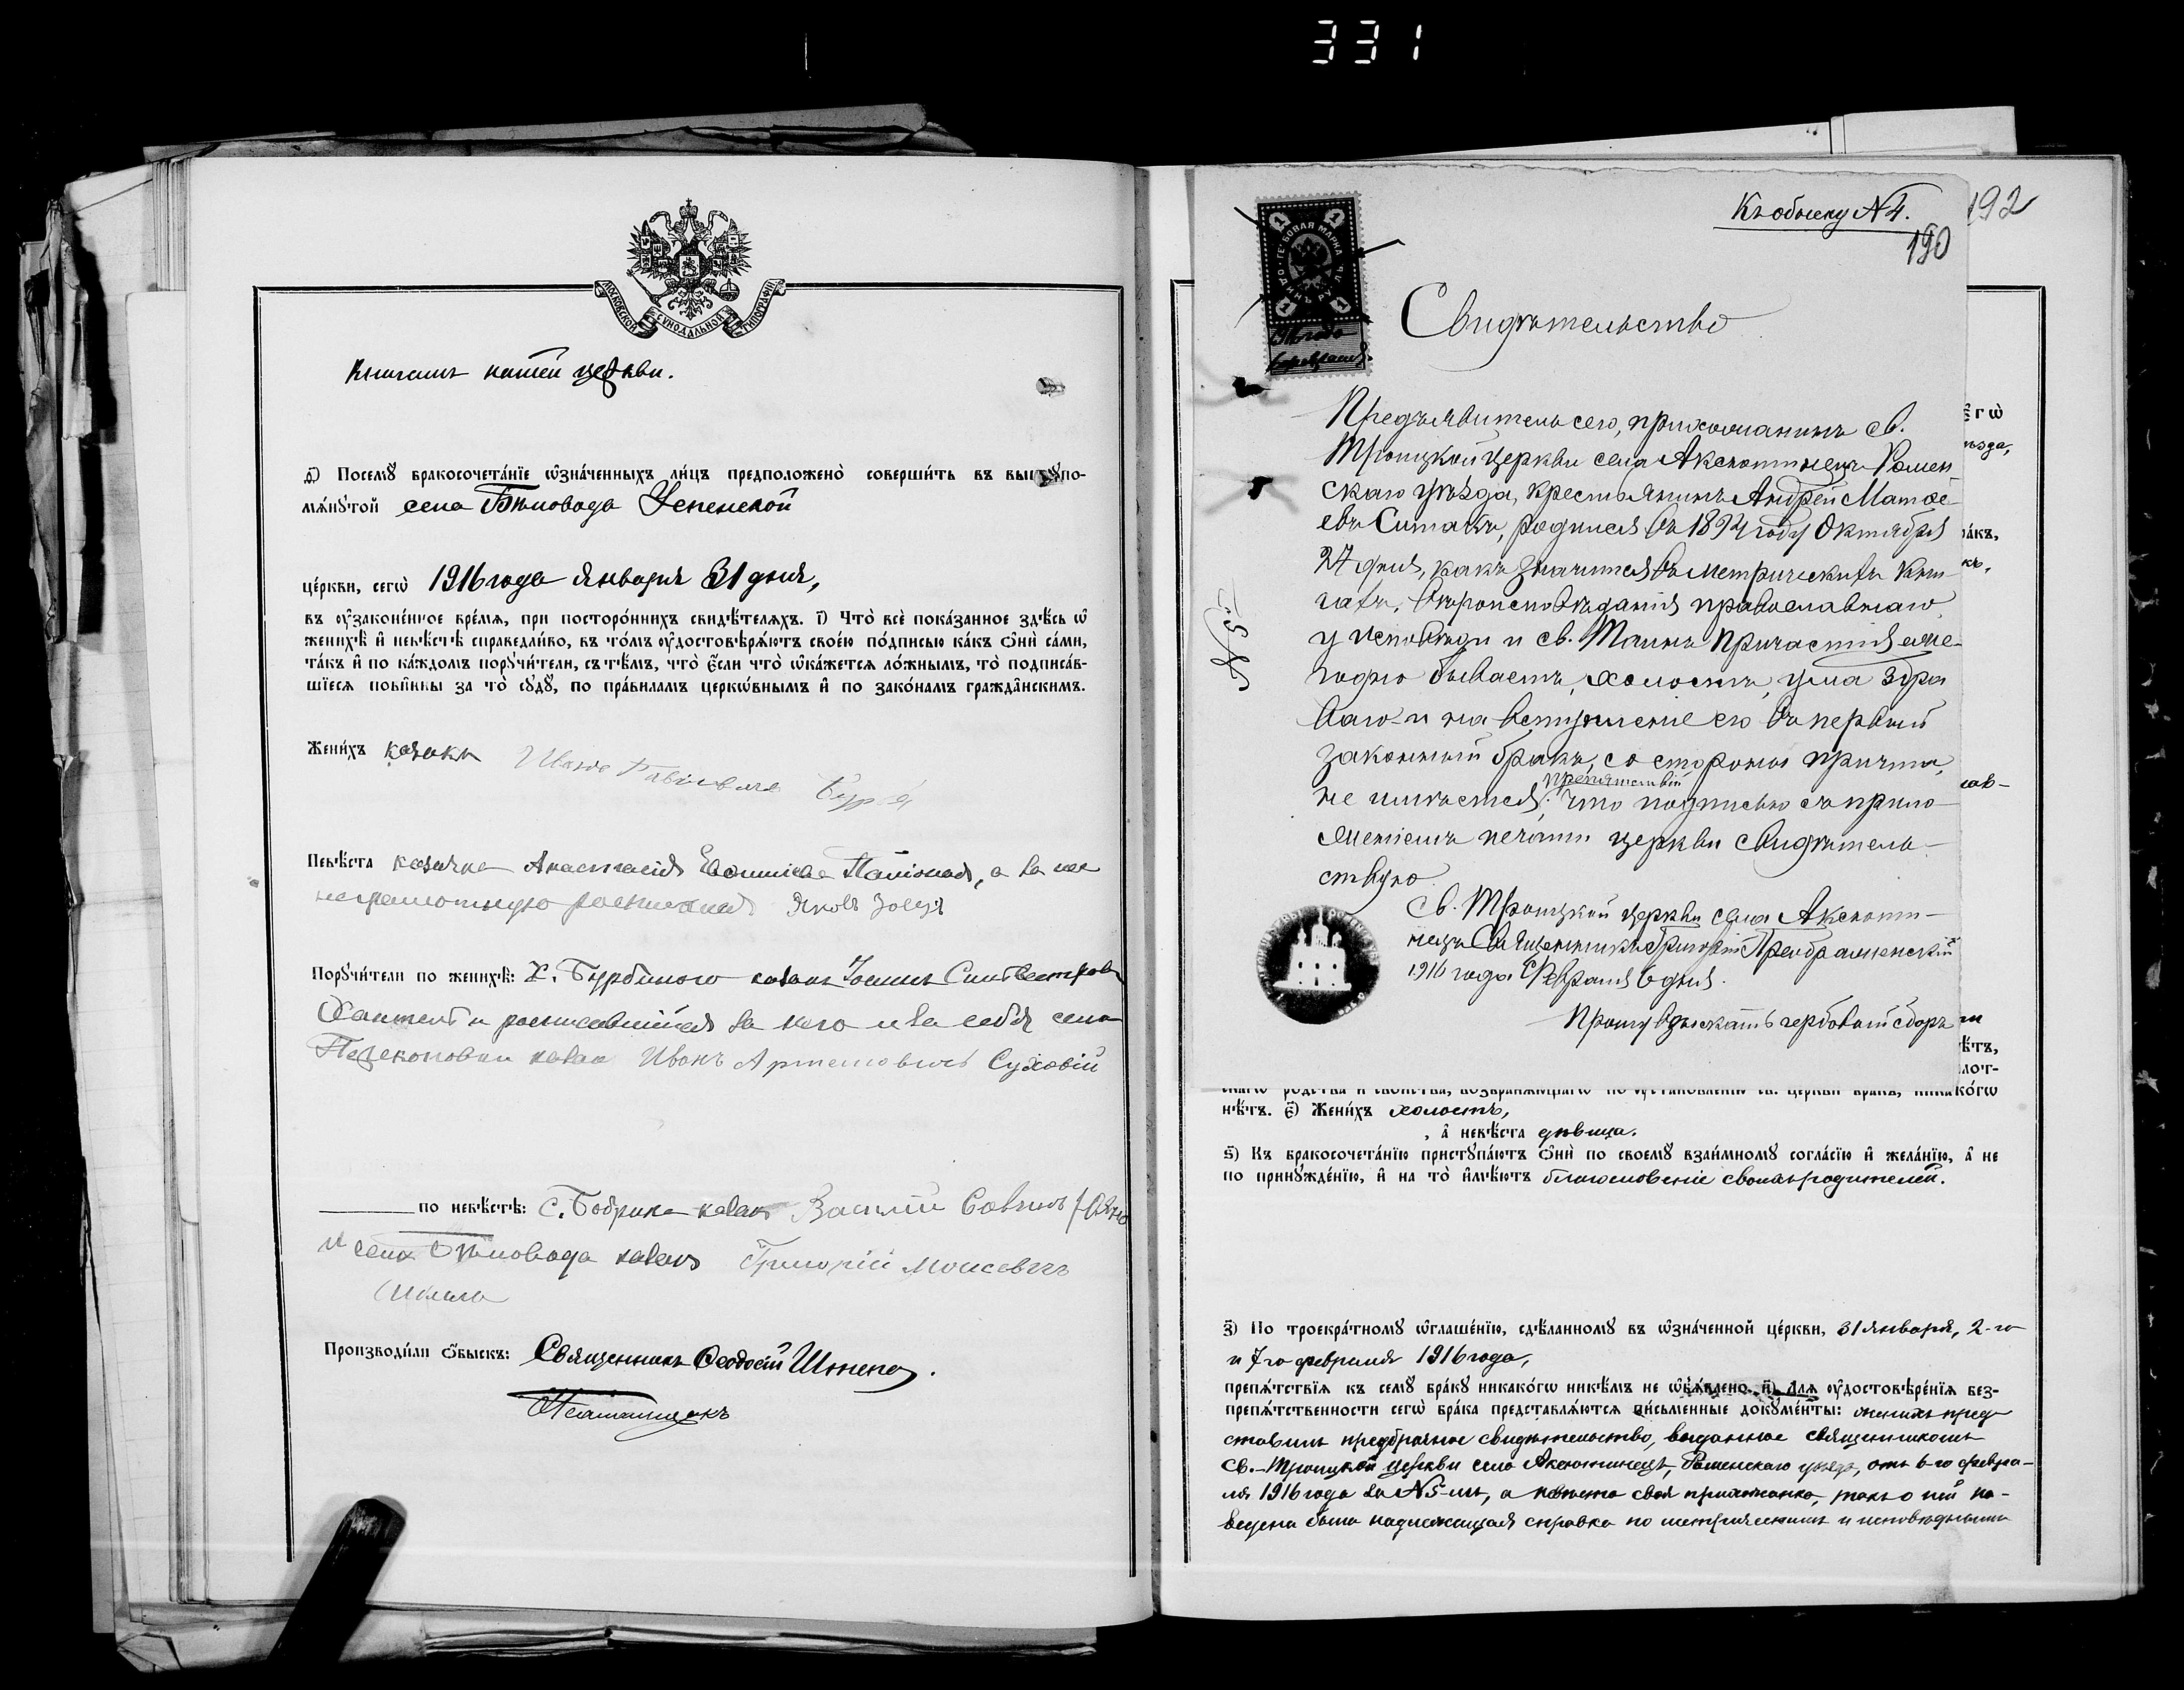 331
МОСКОВСКОЙ СѴНОДАЛЬНОЙ ТИПОГРАФІИ
книгамъ нашей церкви.
д҃) Посемꙋ̀ бракосочета́нїе ѡ҆зна́ченныхъ ли́цъ предположено̀ соверши́ть въ вы
мѧ́нꙋтой села Бѣловода Успенской
це́ркви, сегѡ̀ 1916 года января 31 дня,
въ ᲂу҆зако́ненное вре́мѧ, при посторо́ннихъ свидѣ́телѧхъ. і҃) Что̀ всѐ пока́занное здѣ́сь ѡ҆
женихѣ̀ и҆ невѣ́стѣ справедли́во, въ то́мъ ᲂу҆достовѣрѧ́ютъ свое́ю по́дписью ка́къ ѻ҆нѝ са́ми,
та́къ и҆ по ка́ждомъ порꙋчи́тели, съ тѣ́мъ, что̀ є҆́сли что̀ ѡ҆ка́жетсѧ ло́жнымъ, то̀ подписа́в-
шїесѧ пови́нны за то̀ сꙋдꙋ̀, по пра́виламъ церкѡ́внымъ и҆ по зако́намъ гражда̑нскимъ.
Жени́хъ козакъ Иванъ
Невѣ́ста козачка Анастасія , а за нее
неграмотную росписался Яковъ
Порꙋчи́тели по женихѣ̀: х. козакъ
и росписавшійся за него и за себя села
козак Иванъ Артемовичъ Суховій
по невѣ́стѣ: с. Бобрика козак Василій Савичъ
и села Бѣловода козакъ Григорій Моисеевичъ
Производи́ли ѻ҆́быскъ: Священникъ Ѳеодосій
Псаломщикъ
Къ обыску №4. 192
190
ГЕРБОВАЯ МАРКА ОДИНЪ РУБЛЬ
1916 года
6 февраля
Свидѣтельство
Предъявитель сего, прихожанинъ св.
Троицкой церкви села Аксютинецъ Ромен
скаго уѣзда, крестьянинъ Андрей Матѳе
евъ Ситакъ, родился въ 1894 году Октября
27 дня, какъ значится въ метрическихъ кни-
гахъ, вѣроисповѣданія православнаго,
у исповѣди и св. Таинъ Причастія еже-
годно бываетъ, холостъ, ума здра
ваго и на вступленіе его въ первый
законный бракъ, со стороны причта,
препятствій
не имѣется; что подписью съ прило-
женіемъ печати церкви свидѣтель-
ствую.
№ 5
Св. Троицкой церкви села Аксюти-
нецъ Священникъ Григорій Преображенскій
1916 года Февраля 6 дня.
Прошу взыскать гербовый сборъ
нѣ́тъ. є҃) Жени́хъ холостъ,
, а҆ невѣ́ста дѣвица.
ѕ҃) Къ бракосочета́нїю пристꙋпа́ютъ ѻ҆нѝ по своемꙋ̀ взаи́мномꙋ согла́сїю и҆ жела́нїю, а҆ не
по принꙋжде́нїю, и҆ на то̀ и҆мѣ́ютъ благословеніе своихъ родителей.
з҃) По троекра́тномꙋ ѡ҆глаше́нїю, сдѣ́ланномꙋ въ ѡ҆зна́ченной це́ркви, 31 января, 2-го
и 7го февраля 1916 года,
препѧ́тствїѧ къ семꙋ̀ бра́кꙋ никако́гѡ никѣ́мъ не ѡ҆б̾ѧ́влено. и҃) Длѧ̀ ᲂу҆достовѣре́нїѧ без-
препѧ́тственности сегѡ̀ бра́ка представлѧ́ютсѧ пи́сьменные докꙋме́нты: женихъ пред-
ставилъ предбрачное свидѣтельство, выданное священникомъ
Св.-Троицкой церкви села Аксютинецъ, Роменскаго уѣзда, отъ 6-го февра-
ля 1916 года за №5-мъ, а невѣста своя прихожанка, то о ней на-
ведена была надлежащая справка по метрическимъ и исповѣднымъ